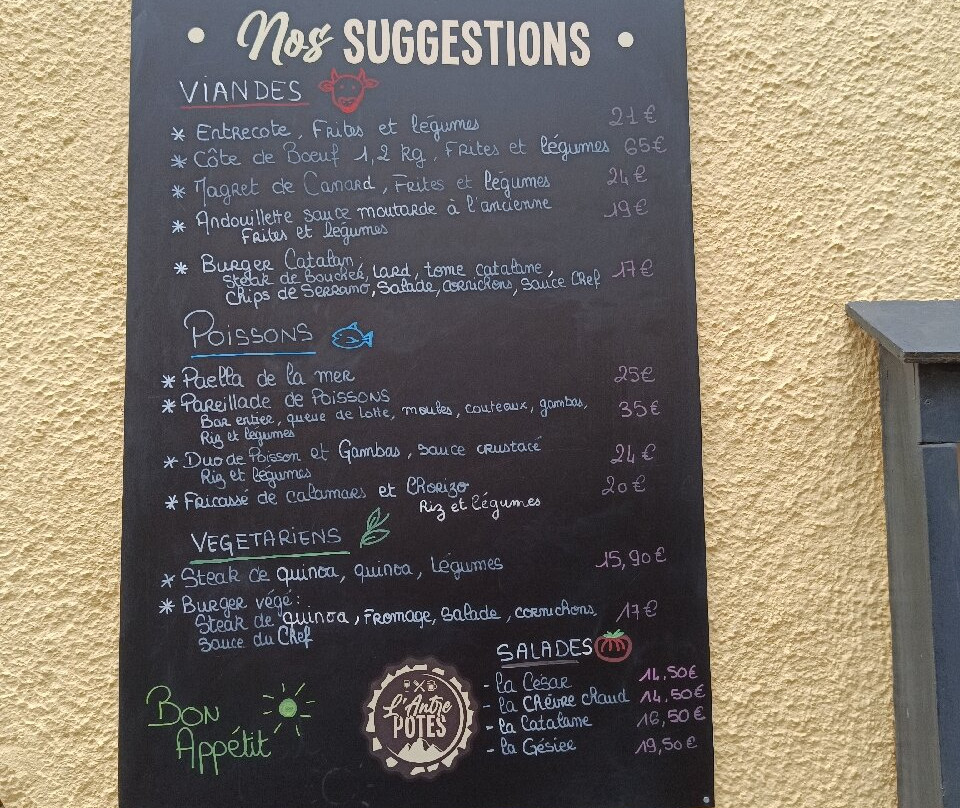 • Nos SUGGESTIONS •
VIANDES
* Entrecote, Frites et légumes 21€
* Côte de Boeuf 1,2 kg, Frites et légumes 65€
* Magret de Canard, Frites et légumes 24€
* Andouillette sauce moutarde à l'ancienne 19€
Frites et légumes
* Burger Catalan,
Steak de Boucher, lard, tome catalane, 17€
Chips de Serrano, Salade, cornichons, Sauce Chef
POISSONS
* Paella de la mer 25€
* Pareillade de POISSONS
Bar entier, queue de lotte, moules, couteaux, gambas, 35€
Riz et légumes
* Duo de Poisson et Gambas, sauce crustacé 24€
Riz et légumes
* Fricassé de calamars et Chorizo 20€
Riz et légumes
VEGETARIENS
* Steak de quinoa, quinoa, Légumes 15,90€
* Burger végé:
Steak de quinoa, fromage, Salade, cornichons, 17€
Sauce du Chef
SALADES
- la César 14,50€
- la Chèvre chaud 14,50€
- la Catalane 16,50€
- la Gésier 19,50€
BON
Appétit
L'Antre
POTES